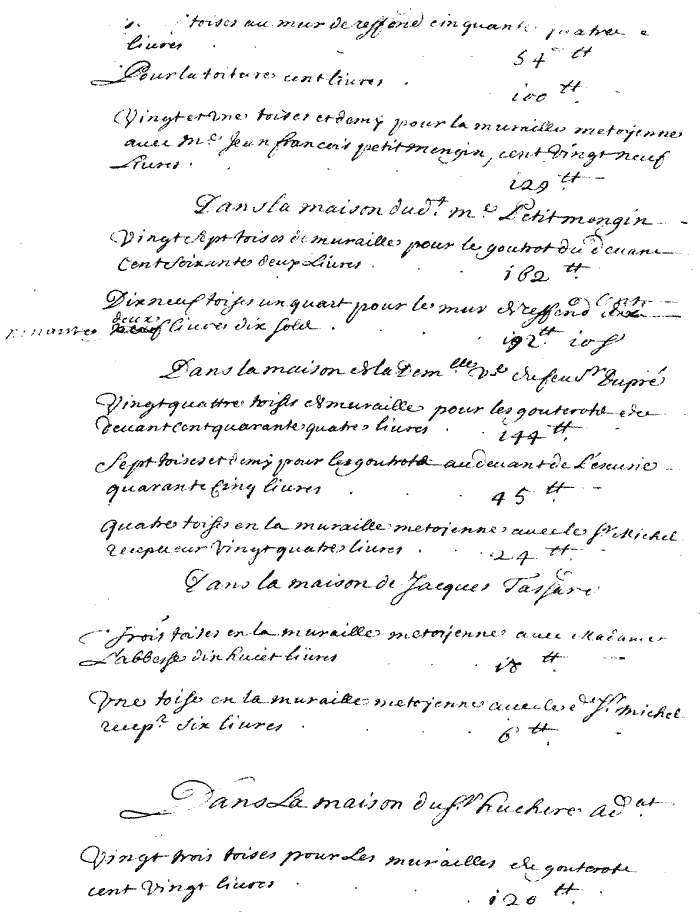 toises au mur de reffend cinquante quatre
livres 54 tt
Pour la toiture cent livres . 100 tt
Vingt et une toises et demy pour la muraille metoyenne
avec Mre. Jean francois petitmengin, cent Vingt neuf
Livres . 129 tt
Dans la maison dudt. me Petitmengin
Vingt sept toises de muraille pour le goutrot du devant
Cent soixante deux Livres . 162 tt
Dix neuf toises un quart pour le mur de reffend Cent
deux livres dix sols . 192 tt 10 s
Dans la maison de la Demlle Ve du feu Sr Dupré
Vingt quattre toises de muraille pour les gouterots de
devant cent quarante quatre livres . 144 tt
Sept toises et demy pour les goutrots au devant de L'escurie
quarante Cinq livres . 45 tt
quatre toises en la muraille metoyenne avec le Sr Michel
recepveur Vingt quatre livres . 24 tt
Dans la maison de Jacques
Trois toises en la muraille metoyenne avec Madame
L'abbesse dix huict livres . 18 tt
Une toise en la muraille metoyenne avec le Sr Michel
recepr. Six livres . 6 tt
Dans La maison du Sr huchere adat
Vingt trois toises pour Les murailles de gouterots
cent Vingt livres . 120 tt